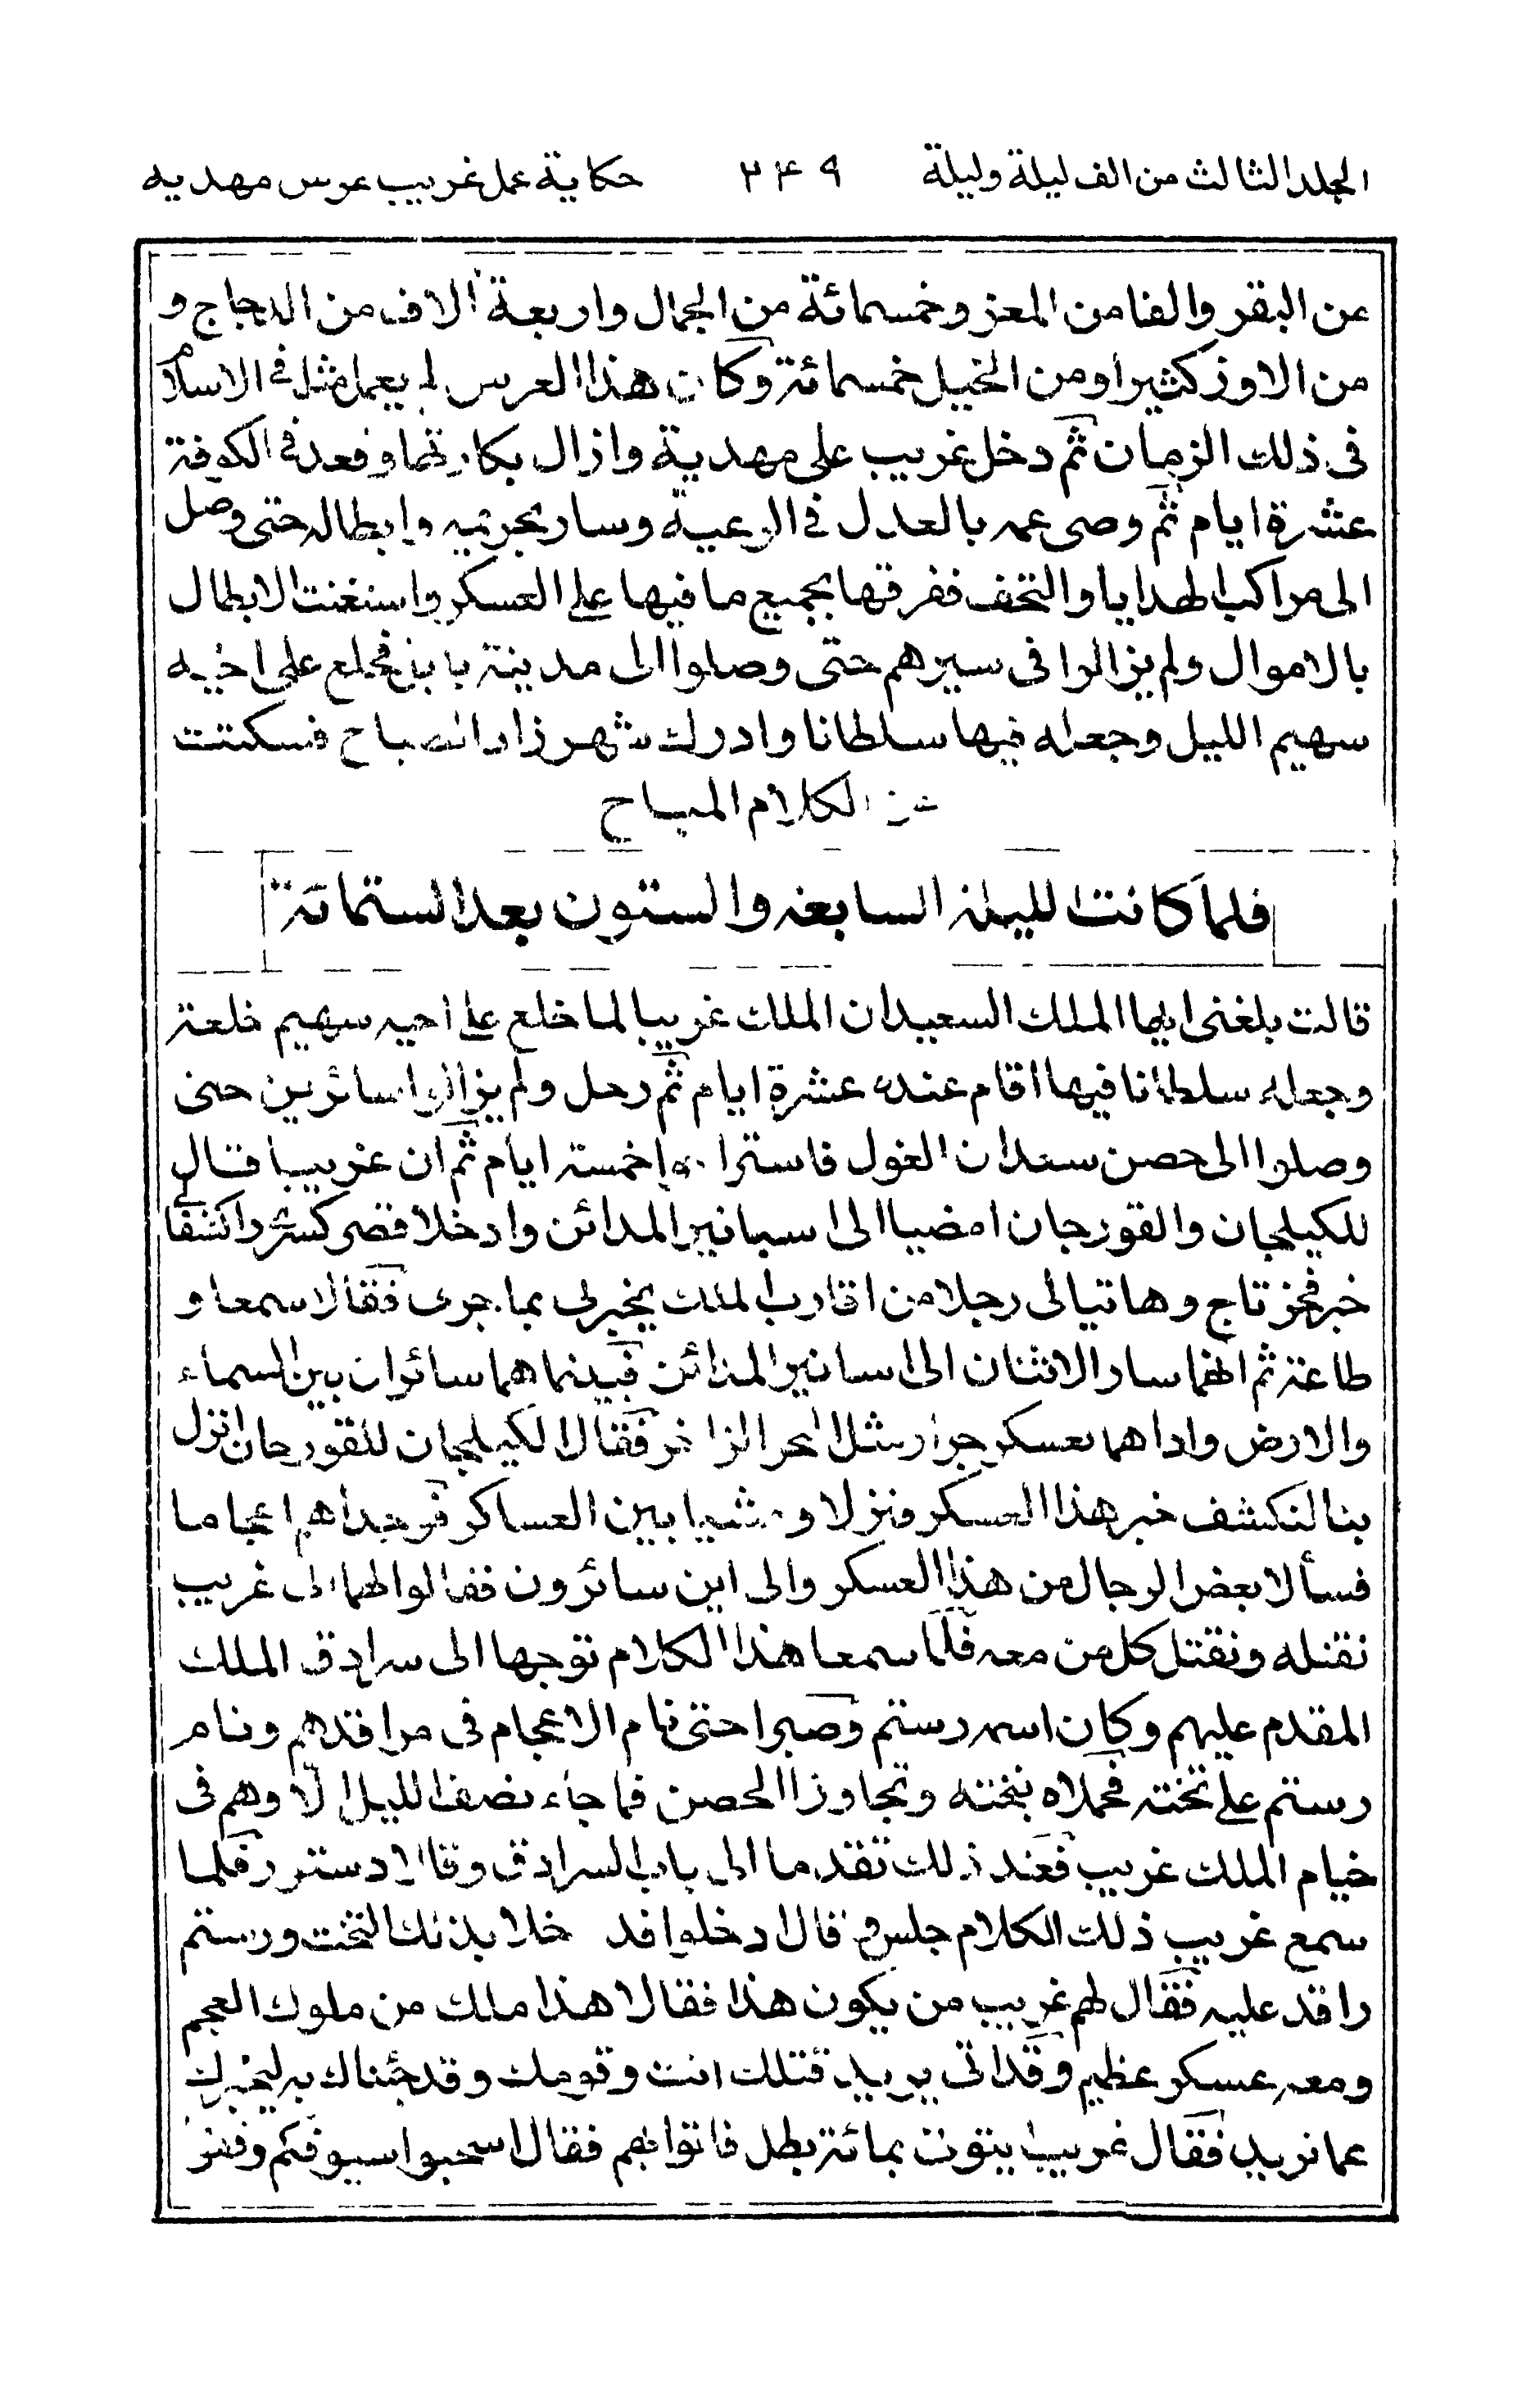 المجلد الثالث من الف ليلة وليلة ٢٤٩ حكاية عمل غريب عرس مهديه
من البقر والفا من المعز وخمسمائة من الجمال واربعة الاف من الدجاج و
من الاوز كثيرا ومن الخيل خمسمائة وكان هذا العرس لم يعمل مثله في الاسلام
في ذلك الزمان ثم دخل غريب على مهدية وازال بكارتها وقعد في الكوفة
عشرة ايام ثم وصى عمه بالعدل في الرعية وسار بحريمه وابطاله حتى وصل
الى مراكب الهدايا والتحف ففرقها بجميع ما فيها على العسكر واستغنت الابطال
بالاموال ولم يزالوا في سيرهم حتى وصلوا الى مدينة بابل فخلع على اخيه
سهيم الليل وجعله فيها سلطانا وادرك شهرزاد الصباح فسكتت
عن الكلام المباح
فلما كانت الليلة السابعة والستون بعد الستمائة
قالت بلغني ايها الملك السعيد ان الملك غريبا لما خلع على اخيه سهيم خلعة
وجعله سلطانا فيها اقام عنده عشرة ايام ثم رحل ولم يزالوا سائرين حتى
وصلوا الى حصن سعدان الغول فاستراحوا خمسة ايام ثم ان غريبا قال
للكيلجان والقورجان امضيا الى اسبانير المدائن وادخلا قصر كسرى واكشفا لي
خبر فخر تاج وهاتيا لي رجلا من اقارب الملك يخبرني بما جرى فقالا سمعا و
طاعة ثم انهما سار الاثنان الى اسبانير المدائن فبينما هما سائران بين السماء
والارض واذا هما بعسكر جرار مثل البحر الزاخر فقال الكيلجان للقورجان انزل
بنا لنكشف خبر هذا العسكر فنزلا ومشيا بين العساكر فوجداهم اعجاما
فسألا بعض الرجال من هذا العسكر والى اين سائرون فقالوا لهما الى غريب
نقتله ونقتل كل من معه فلما سمعا هذا الكلام توجها الى سرادق الملك
المقدم عليهم وكان اسمه رستم وصبرا حتى نام الاعجام في مراقدهم ونام
رستم على تخته فحملاه بتخته وتجاوزا الحصن فما جاء نصف الليل الا وهم في
خيام الملك غريب فعند ذلك تقدما الى باب السرادق وقالا دستور فلما
سمع غريب ذلك الكلام جلس وقال ادخلوا فدخلا بذلك التخت ورستم
راقد عليه فقال لهم غريب من يكون هذا فقالا هذا ملك من ملوك العجم
ومعه عسكر عظيم وقد اتى يريد قتلك انت وقومك وقد جئناك به ليخبرك
عما تريد فقال غريب ايتوني بمائة بطل فاتوا بهم فقال اسحبوا سيوفكم وقفوا